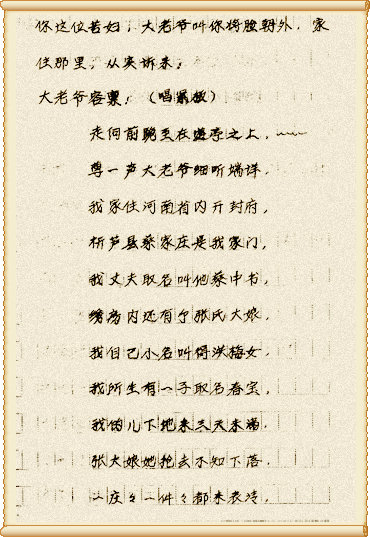 你这位苦妇；大老爷叫你将脸朝外，家
住那里，从实诉来；
大老爷容禀；（唱紧板）
走向前跪至在 之上，
尊一声大老爷细听端详，
我家住河南省内开封府，
祈芦县蔡家庄是我家门，
我丈夫取名叫他蔡中书，
绣房内还有个张氏大娘，
我自己小名叫得洪梅女，
我所生有一子取名春宝，
我的儿下地来三天未满，
张大娘她抢去不知下落，
一庄々一件々都来表冷，